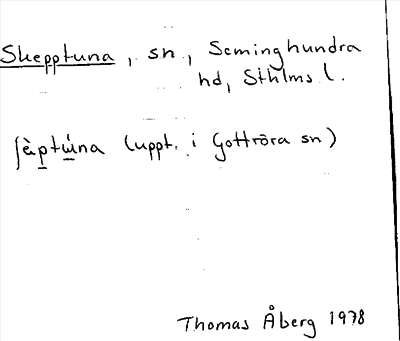 Skepptuna, sn, Seminghundra
hd, Sthlms l.
ʃèp̲tú̲na (uppt. i Gottröra sn)
Thomas Åberg 1978